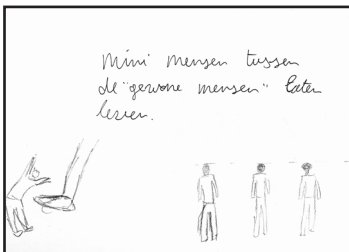 mini mensen tussen
de "gewone mensen" laten
leven.